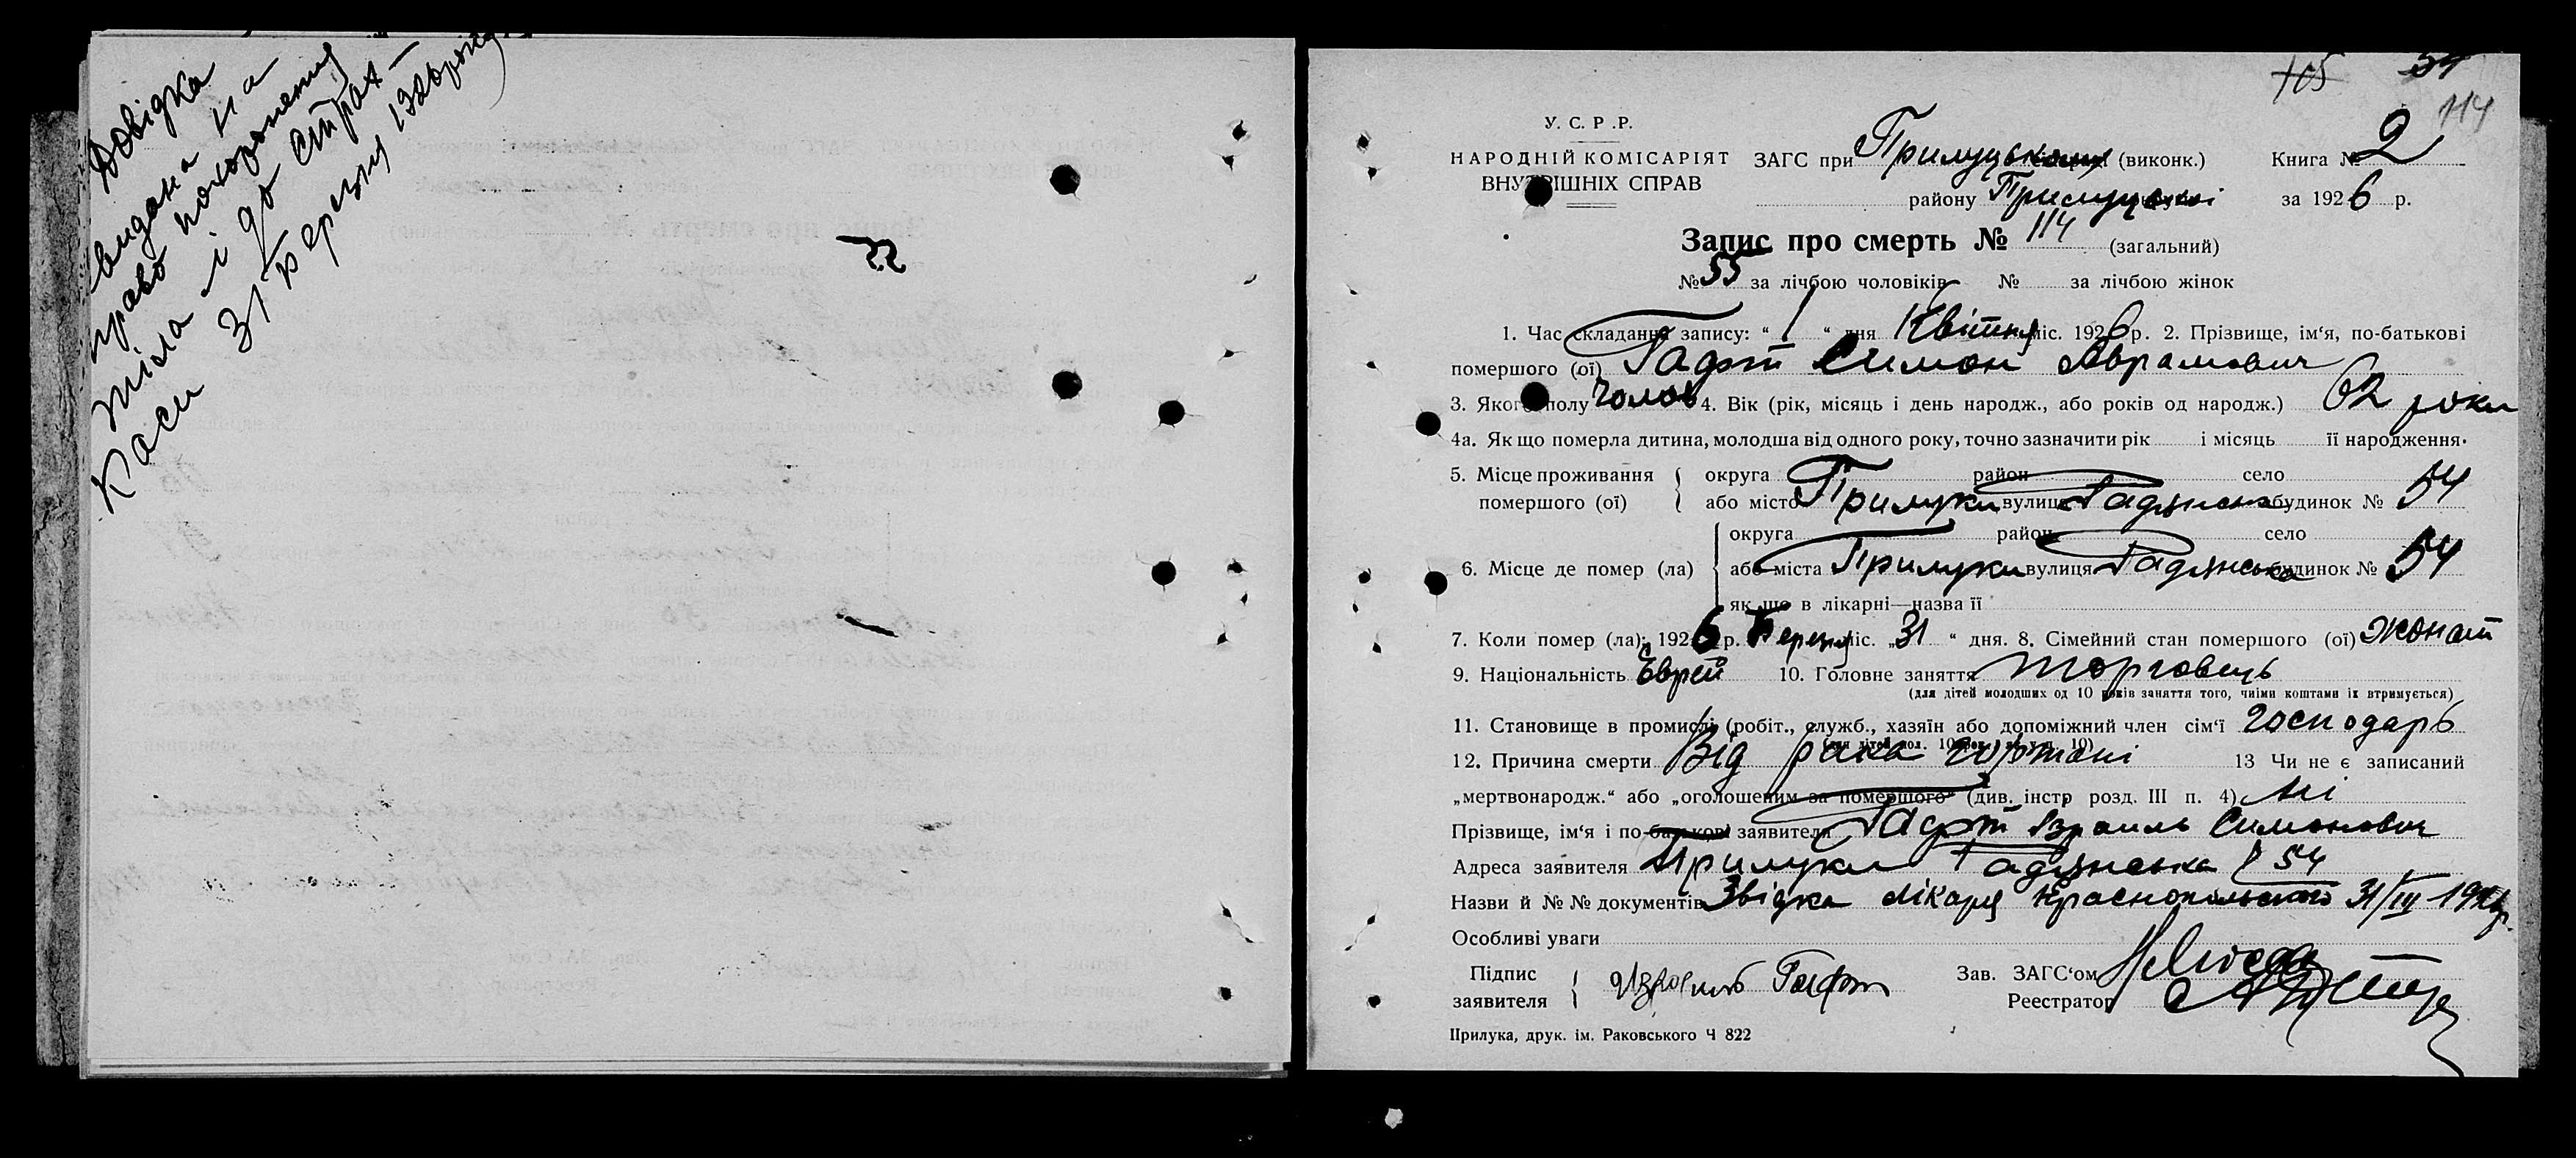 Довідка
видана на
право похоронення
тіла і до страх-
каси
31 березня 1926 року
105 54
114
У. С. Р .Р.
НАРОДНІЙ КОМІСАРІЯТ
ВНУТРІШНІХ СПРАВ
ЗАГС при Прилуцьком (виконк.) Книга № 2
району Прилуцькі за 1926 р.
Запис про смерть № 114 (загальний)
№ 55 за лічбою чоловіків № за лічбою жінок
1. Час складання запису: “ 1 “ дня Квітня міс. 1926 р. 2. Прізвище, ім‘я, по-батькові
помершого (ої) Гафт Симон Абрамович
3. Якого полу Чолов 4. Вік (рік, місяць і день народж., або років од народж.) 62 роки
4а. Як що померла дитина, молодша від одного року, точно зазначити рік і місяць її народження.
5. Місце проживання округа район село
помершого (ої) або місто Прилуки вулиця Радянська будинок № 54
округа район село
6. Місце де помер (ла) або міста Прилуки вулиця Радянська будинок № 54
як що в лікарні—назва її
7. Коли помер (ла): 1926 р. Березня міс. „31 “ дня. 8. Сімейний стан помершого (ої) жонат
9. Національність Єврей 10. Головне заняття торговець
(для дітей молодших од 10 років заняття того, чиїми коштами їх втримується)
11. Становище в промислі (робіт., служб., хазяїн або допоміжний член сім‘ї господарь
12. Причина смерти Від рака гортані 13 Чи не є записаний
„мертвонародж.“ або „оголошеним за помершого“ (див. інстр розд. III п. 4) Ні
Прізвище, ім‘я і по-батькові заявителя Гафт Ізраиль Симонович
Адреса заявителя Прилуки Радянська 54
Назви й № № документів Звідка лікаря Краснопольского 31/III 1926р.
Особливі уваги
Підпис Зав. ЗАГС‘ом
заявителя Израиль Гафт Реестратор
Прилука, друк. ім. Раковського Ч 822